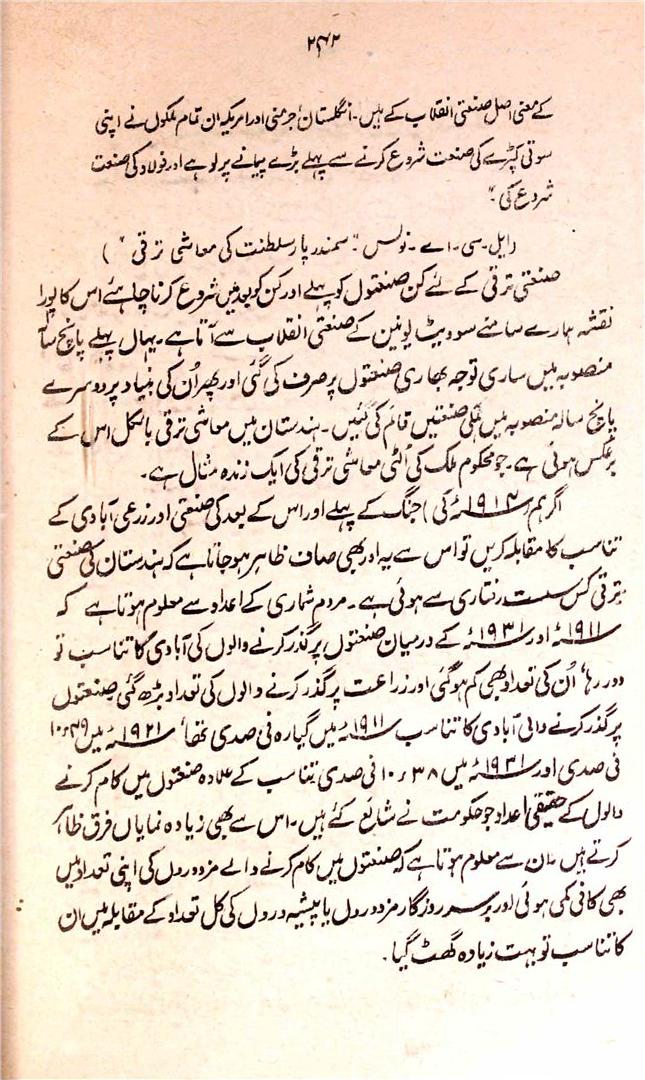 ۲۴۲
کے معنی اصل صنعتی انقلاب کے ہیں۔ انگلستان، جرمنی اور امریکہ ان تمام ملکوں نے اپنی
سوتی کپڑے کی صنعت شروع کرنے سے پہلے بڑے پیمانے پر لوہے اور فولاد کی صنعت
شروع کی۔"
(ایل۔ سی۔ اے۔ نولس۔ "سمندر پار سلطنت کی معاشی ترقی")
صنعتی ترقی کے لئے کن صنعتوں کو پہلے اور کن کو بعد میں شروع کرنا چاہئے اس کا پورا
نقشہ ہمارے سامنے سوویٹ یونین کے صنعتی انقلاب سے آتا ہے۔ یہاں پہلے پانچ سالہ
منصوبہ میں ساری توجہ بھاری صنعتوں پر صرف کی گئی اور پھر اُن کی بنیاد پر دوسرے
پانچ سالہ منصوبہ میں ہلکی صنعتیں قائم کی گئیں۔ ہندستان میں معاشی ترقی بالکل اس کے
برعکس ہوئی ہے۔ جو محکوم ملک کی اُلٹی معاشی ترقی کی ایک زندہ مثال ہے۔
اگر ہم (۱۹۱۴ء کی) جنگ کے پہلے اور اس کے بعد کی صنعتی اور زرعی آبادی کے
تناسب کا مقابلہ کریں تو اس سے یہ اور بھی صاف ظاہر ہو جاتا ہے کہ ہندستان کی صنعتی
ترقی کس سست رفتاری سے ہوئی ہے۔ مردم شماری کے اعداد سے معلوم ہوتا ہے کہ
۱۹۱۱ء اور ۱۹۳۱ء کے درمیان صنعتوں پر گذر کرنے والوں کی آبادی کا تناسب تو
دور رہا، اُن کی تعداد بھی کم ہو گئی اور زراعت پر گذر کرنے والوں کی تعداد بڑھ گئی صنعتوں
پر گذر کرنے والی آبادی کا تناسب ۱۹۱۱ء میں گیارہ فی صدی تھا، ۱۹۲۱ء میں ۴۹ء۱۰
فی صدی اور ۱۹۳۱ء میں ۳۸ء۱۰ فی صدی۔ تناسب کے علاوہ صنعتوں میں کام کرنے
والوں کے حقیقی اعداد جو حکومت نے شایع کئے ہیں۔ اس سے بھی زیادہ نمایاں فرق ظاہر
کرتے ہیں۔ ان سے معلوم ہوتا ہے کہ صنعتوں میں کام کرنے والے مزدوروں کی اپنی تعداد میں
بھی کافی کمی ہوئی اور برسر روزگار مزدوروں یا پیشہ وروں کی کل تعداد کے مقابلہ میں ان
کا تناسب تو بہت زیادہ گھٹ گیا۔